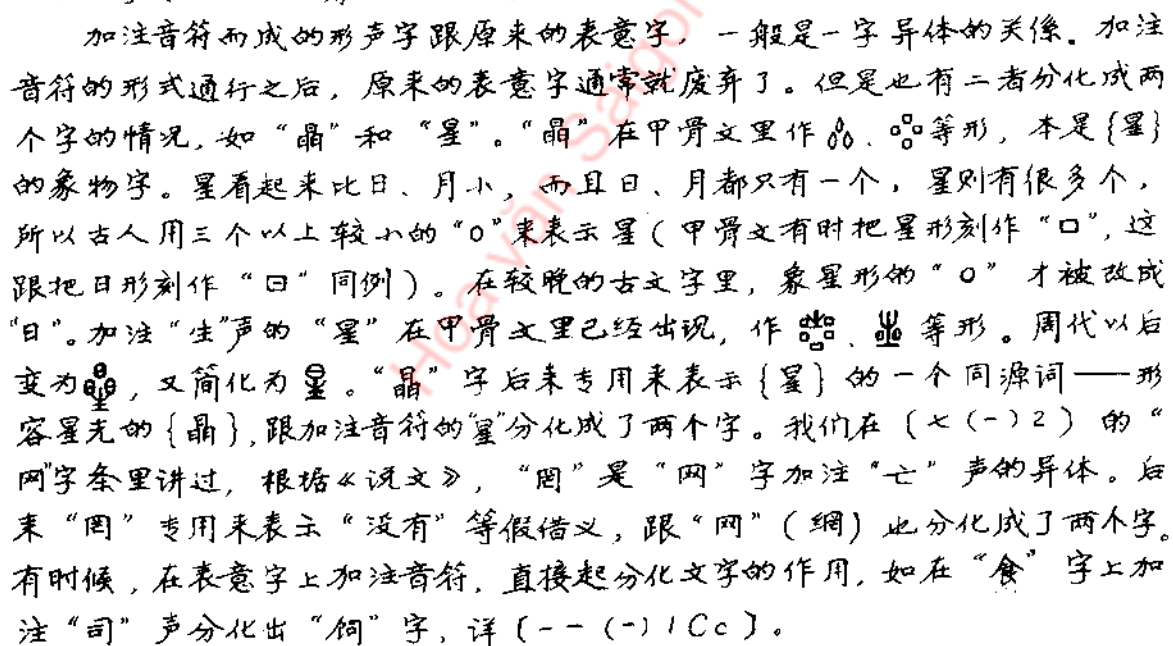 加注音符而成的形声字跟原来的表意字，一般是一字异体的关係。加注
音符的形式通行之后，原来的表意字通常就废弃了。但是也有二者分化成两
个字的情况，如“晶”和“星”。“晶”在甲骨文里作、等形，本是{星}
的象物字。星看起来比日、月小，而且日、月都只有一个，星则有很多个，
所以古人用三个以上较小的“○”来表示星（甲骨文有时把星形刻作“口”，这
跟把日形刻作“日”同例）。在较晚的古文字里，象星形的“○”才被改成
“日”。加注“生”声的“星”在甲骨文里已经出现，作、等形。周代以后
变为，又简化为星。“晶”字后来专用来表示{星}的一个同源词——形
容星光的{晶}，跟加注音符的“星”分化成了两个字。我们在〔七(一)2〕的“
网”字条里讲过，根据《说文》，“罔”是“网”字加注“亡”声的异体。后
来“罔”专用来表示“没有”等假借义，跟“网”（網）也分化成了两个字。
有时候，在表意字上加注音符，直接起分化文字的作用，如在“食”字上加
注“司”声分化出“饲”字，详〔一一(一)1Cc〕。
Hoa văn Saigon